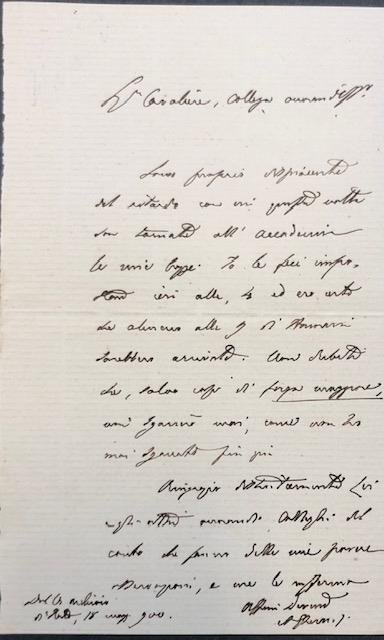 Sr Cavaliere, collega onorandissmo
Sono proprio dispiacente
del ritardo con cui questa volta
son tornate all' Accademia
le mie bozze. Io le feci impo-
stare ieri alle, 4 ed ero certo
che almeno alle 9 di stamani
sarebbero arrivate. Non dubiti
che, salvo casi di forza maggiore,
non sgarrerò mai, come non ho
mai sgarrato fin qui
Ringrazio distintamente Lei
e gli altri onorandi Colleghi del
conto che fanno delle mie povere
osservazioni, e me le raffermo
Dal
18 900.